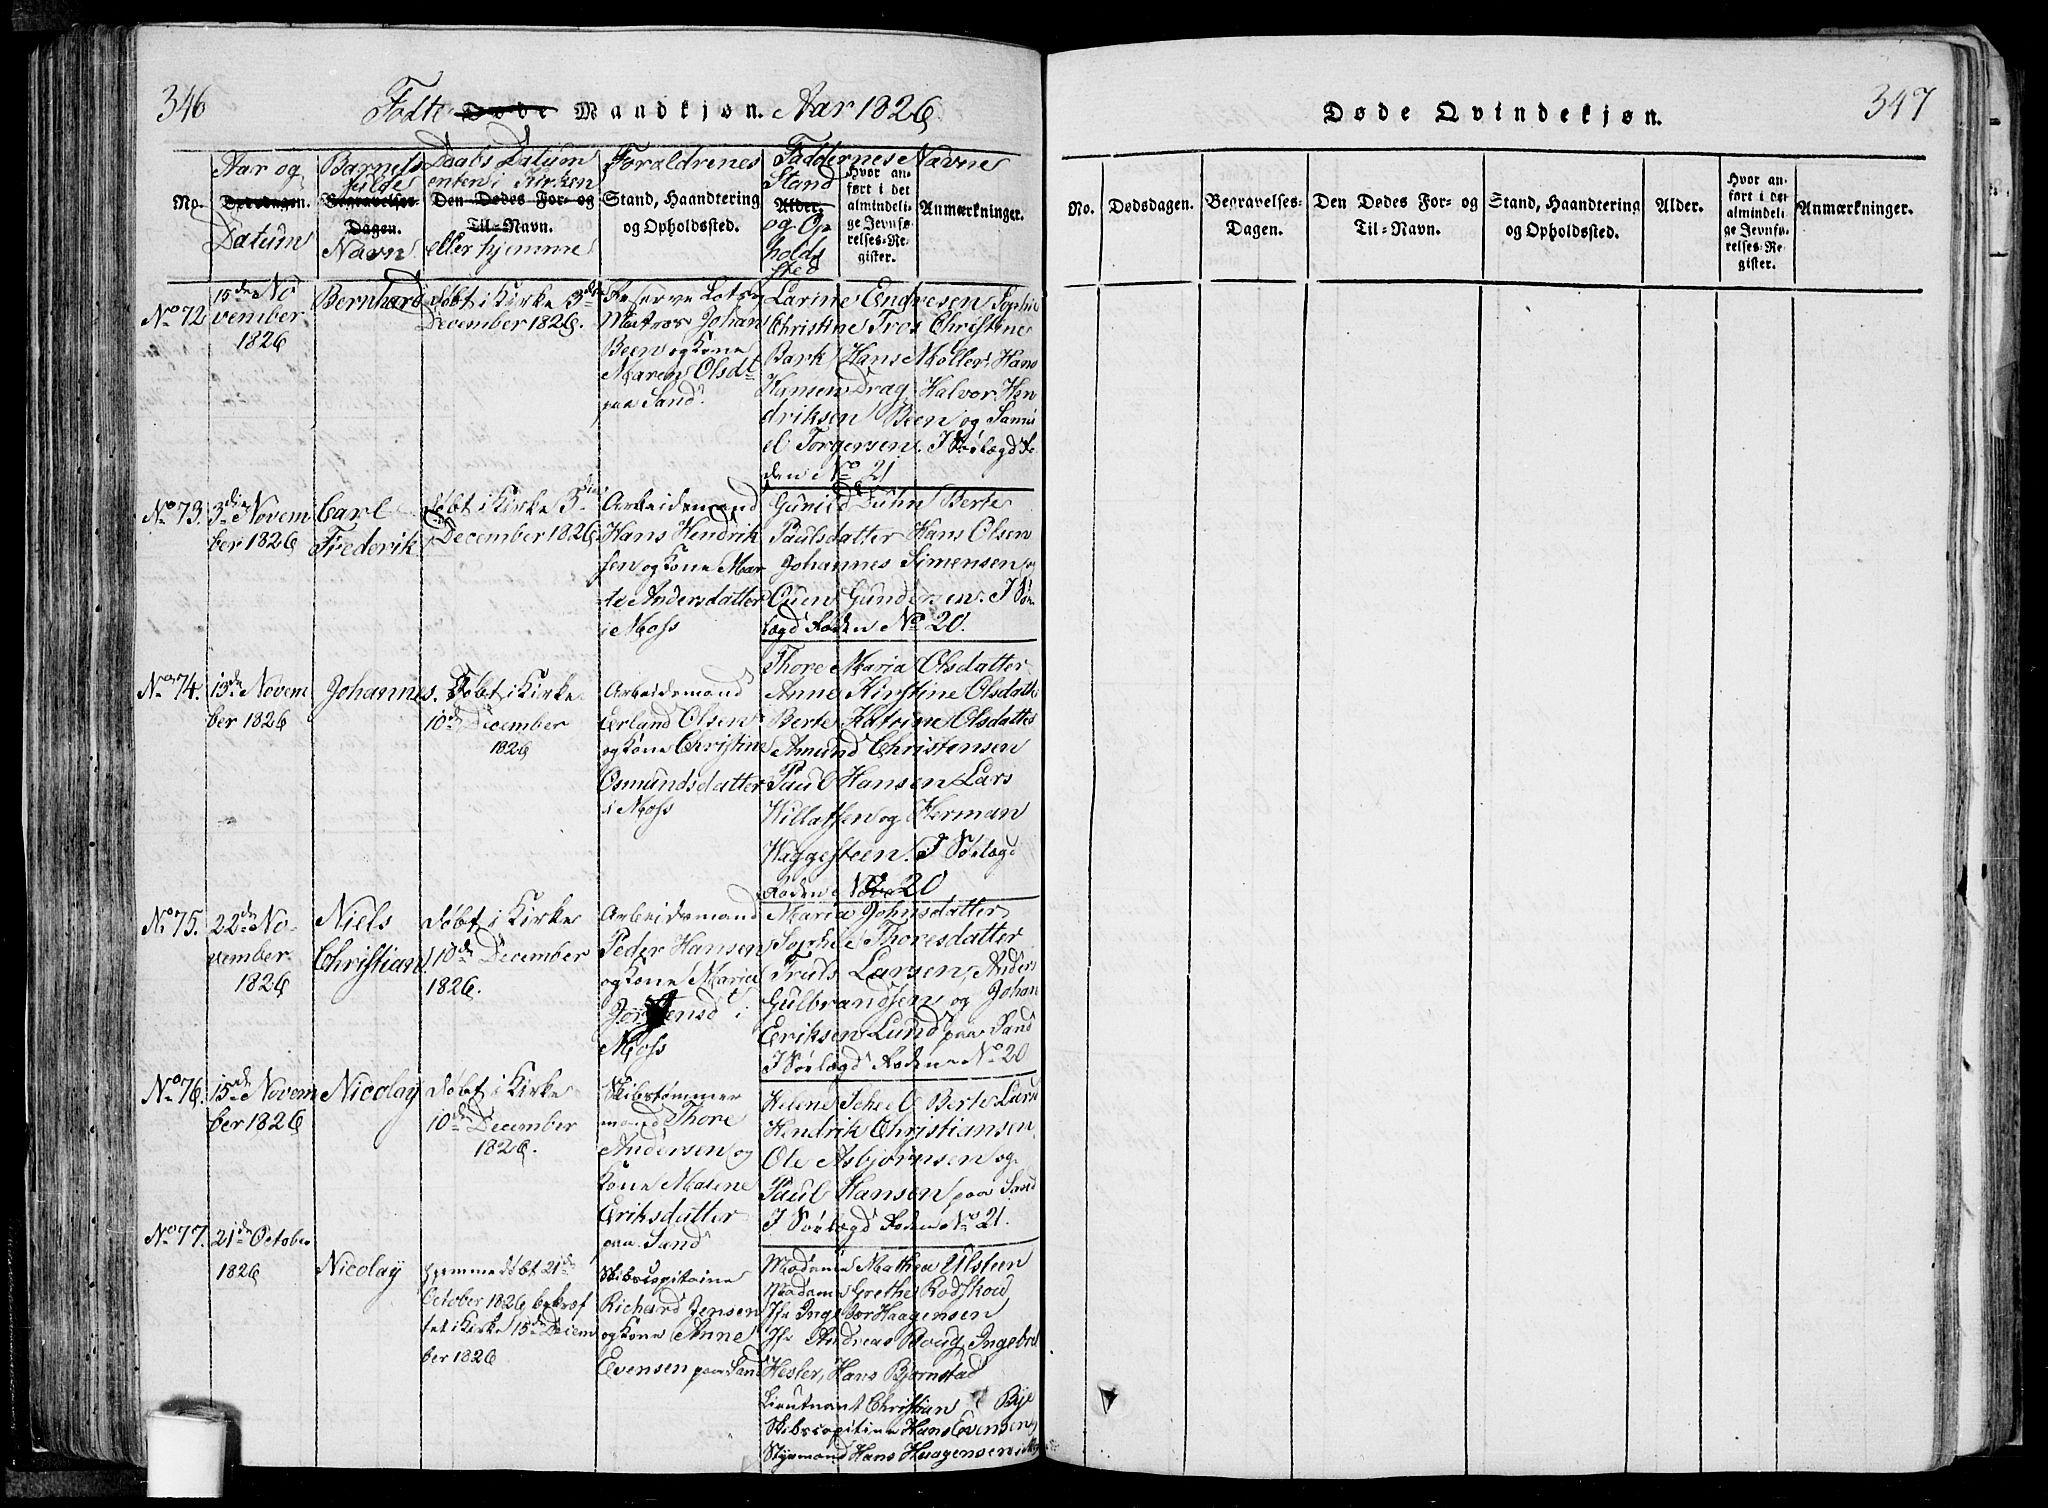 346
Fødte Døde Mandkjøn. Aar 1826
No.
Aar og
Dødsdagen.
Datum
Barnets
fulde
Begravelses-
Dagen.
Navn
Daabs Datum
enten i Kirken
Den Dødes For- og
Til-Navn.
eller hjemme
Forældrenes
Stand, Haandtering
og Opholdssted.
Faddernes Navne
Stand
Alder.
og Op
holds
sted
Hvor an-
ført i det
almindeli-
ge Jevnfø-
relses-Re-
gister.
Anmærkninger.
No 72
15de No
vember
1826
Bernhard
døbt i Kirke 3de
December 1826.
Reserve Lots og
Matros Johan
Been og Kone
Maren Olsdt
paa Sand.
Larine Endresen Sophie
Christine Tros Christine
Bark Hans Møller, Hans
Hansen Drag Halvor Hen
driksen Been og Samu
el Torgersen. I Sølægd Ro
den No 21
No 73.
3die Novem
ber 1826
Carl
Frederik
døbt i Kirke 3die
December 1826.
Arbeidsmand
Hans Hendrik
sen og Kone Mar
te Andersdatter
i Moss
Gunild Duhn Berte
Paulsdatter Hans Olsen
Johannes Simensen og
Ouen Gundersen. I Søe
lægd Roden No 20.
No 74.
13de Novem
ber 1826
Johannes.
Døbt i Kirke
10de December
1826
Arbeidsmand
Erland Olsen
og Kone Christine
Osmundsdatter
i Moss
Thore Maria Olsdatter
Anne Kirstine Olsdatt
Berte Katrine Olsdatter
Amund Christensen
Paul Hansen Lars
Killassen og Herman
Haggesteen. I Sølægd
Roden No 20
No 75.
22de No-
vember
1826
Niels
Christian
døbt i Kirke
10de December
1826.
Arbeidsmand
Peder Hansen
og Kone Maria
Jorgensdt i
Moss
Maria Johnsdatter
Sophie Thoresdatter
Truls Larsen, Anders
Gulbrandsen og Johan
Eriksen Lund paa Sand
I Sølægd Roden No 20
No 76.
15de Novem
ber 1826
Nicolay
døbt i Kirke
10de December
1826.
Skibstømmer
mand Thore
Andersen og
Kone Malene
Eriksdatter
paa Sand
Helene Scheel Berte Lars
Hendrik Christiansen
Ole Asbjørnsen og
Paul Hansen paa Sand
I Sølægd Roden No 21.
No 77.
21de October
1826
Nicolaÿ
hjemmedøbt 21de
October 1826 bekræf
tet i Kirke 15de Decem
ber 1826
Skibscapitaine
Richard Jensen
og Kone Anne
Evensen paa Sand
Madame Mathea Ulsten
Madame Grethe Rodskou
Jfr Ingebor Haagensen
Hr Andreas Boug, Ingebret
Hesler, Hans Bjørnstad
Lieutnant Christian Bye
Skibscapitine Hans Evensen
Styrmand Hans Haagensen i Moss
347
Døde Qvindekjøn.
No.
Dødsdagen.
Begravelses-
Dagen.
Den Dødes For- og
Til-Navn.
Stand, Haandtering
og Opholdssted.
Alder.
Hvor an-
ført i det
almindeli-
ge Jevnfø-
relses-Re-
gister.
Anmærkninger.